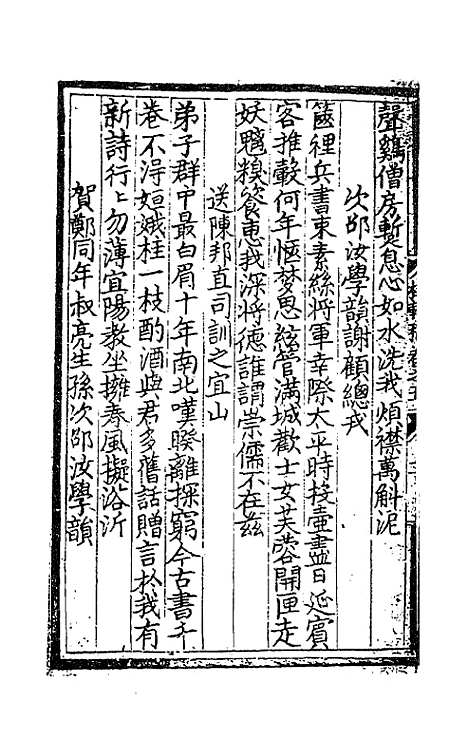 聲鷄僧房蹔息心如水洗我煩襟萬斛泥
次邵汝學韻謝顧總戎
匧裡兵書束素絲將軍幸際太平時投壺盡日延賓
客推轂何年愜梦思絃管滿城歡士女芙蓉開匣走
妖魑糗飱惠我深將德誰謂崇儒不在兹
送陳邦直司訓之宜山
弟子群中最白眉十年南北嘆暌離探窮今古書千
卷不淂姮娥桂一枝酌酒與君多舊話贈言於我有
新詩行〻勿薄宜陽教坐擁春風擬浴沂
賀鄭同年叔亮生孫次邵汝學韻